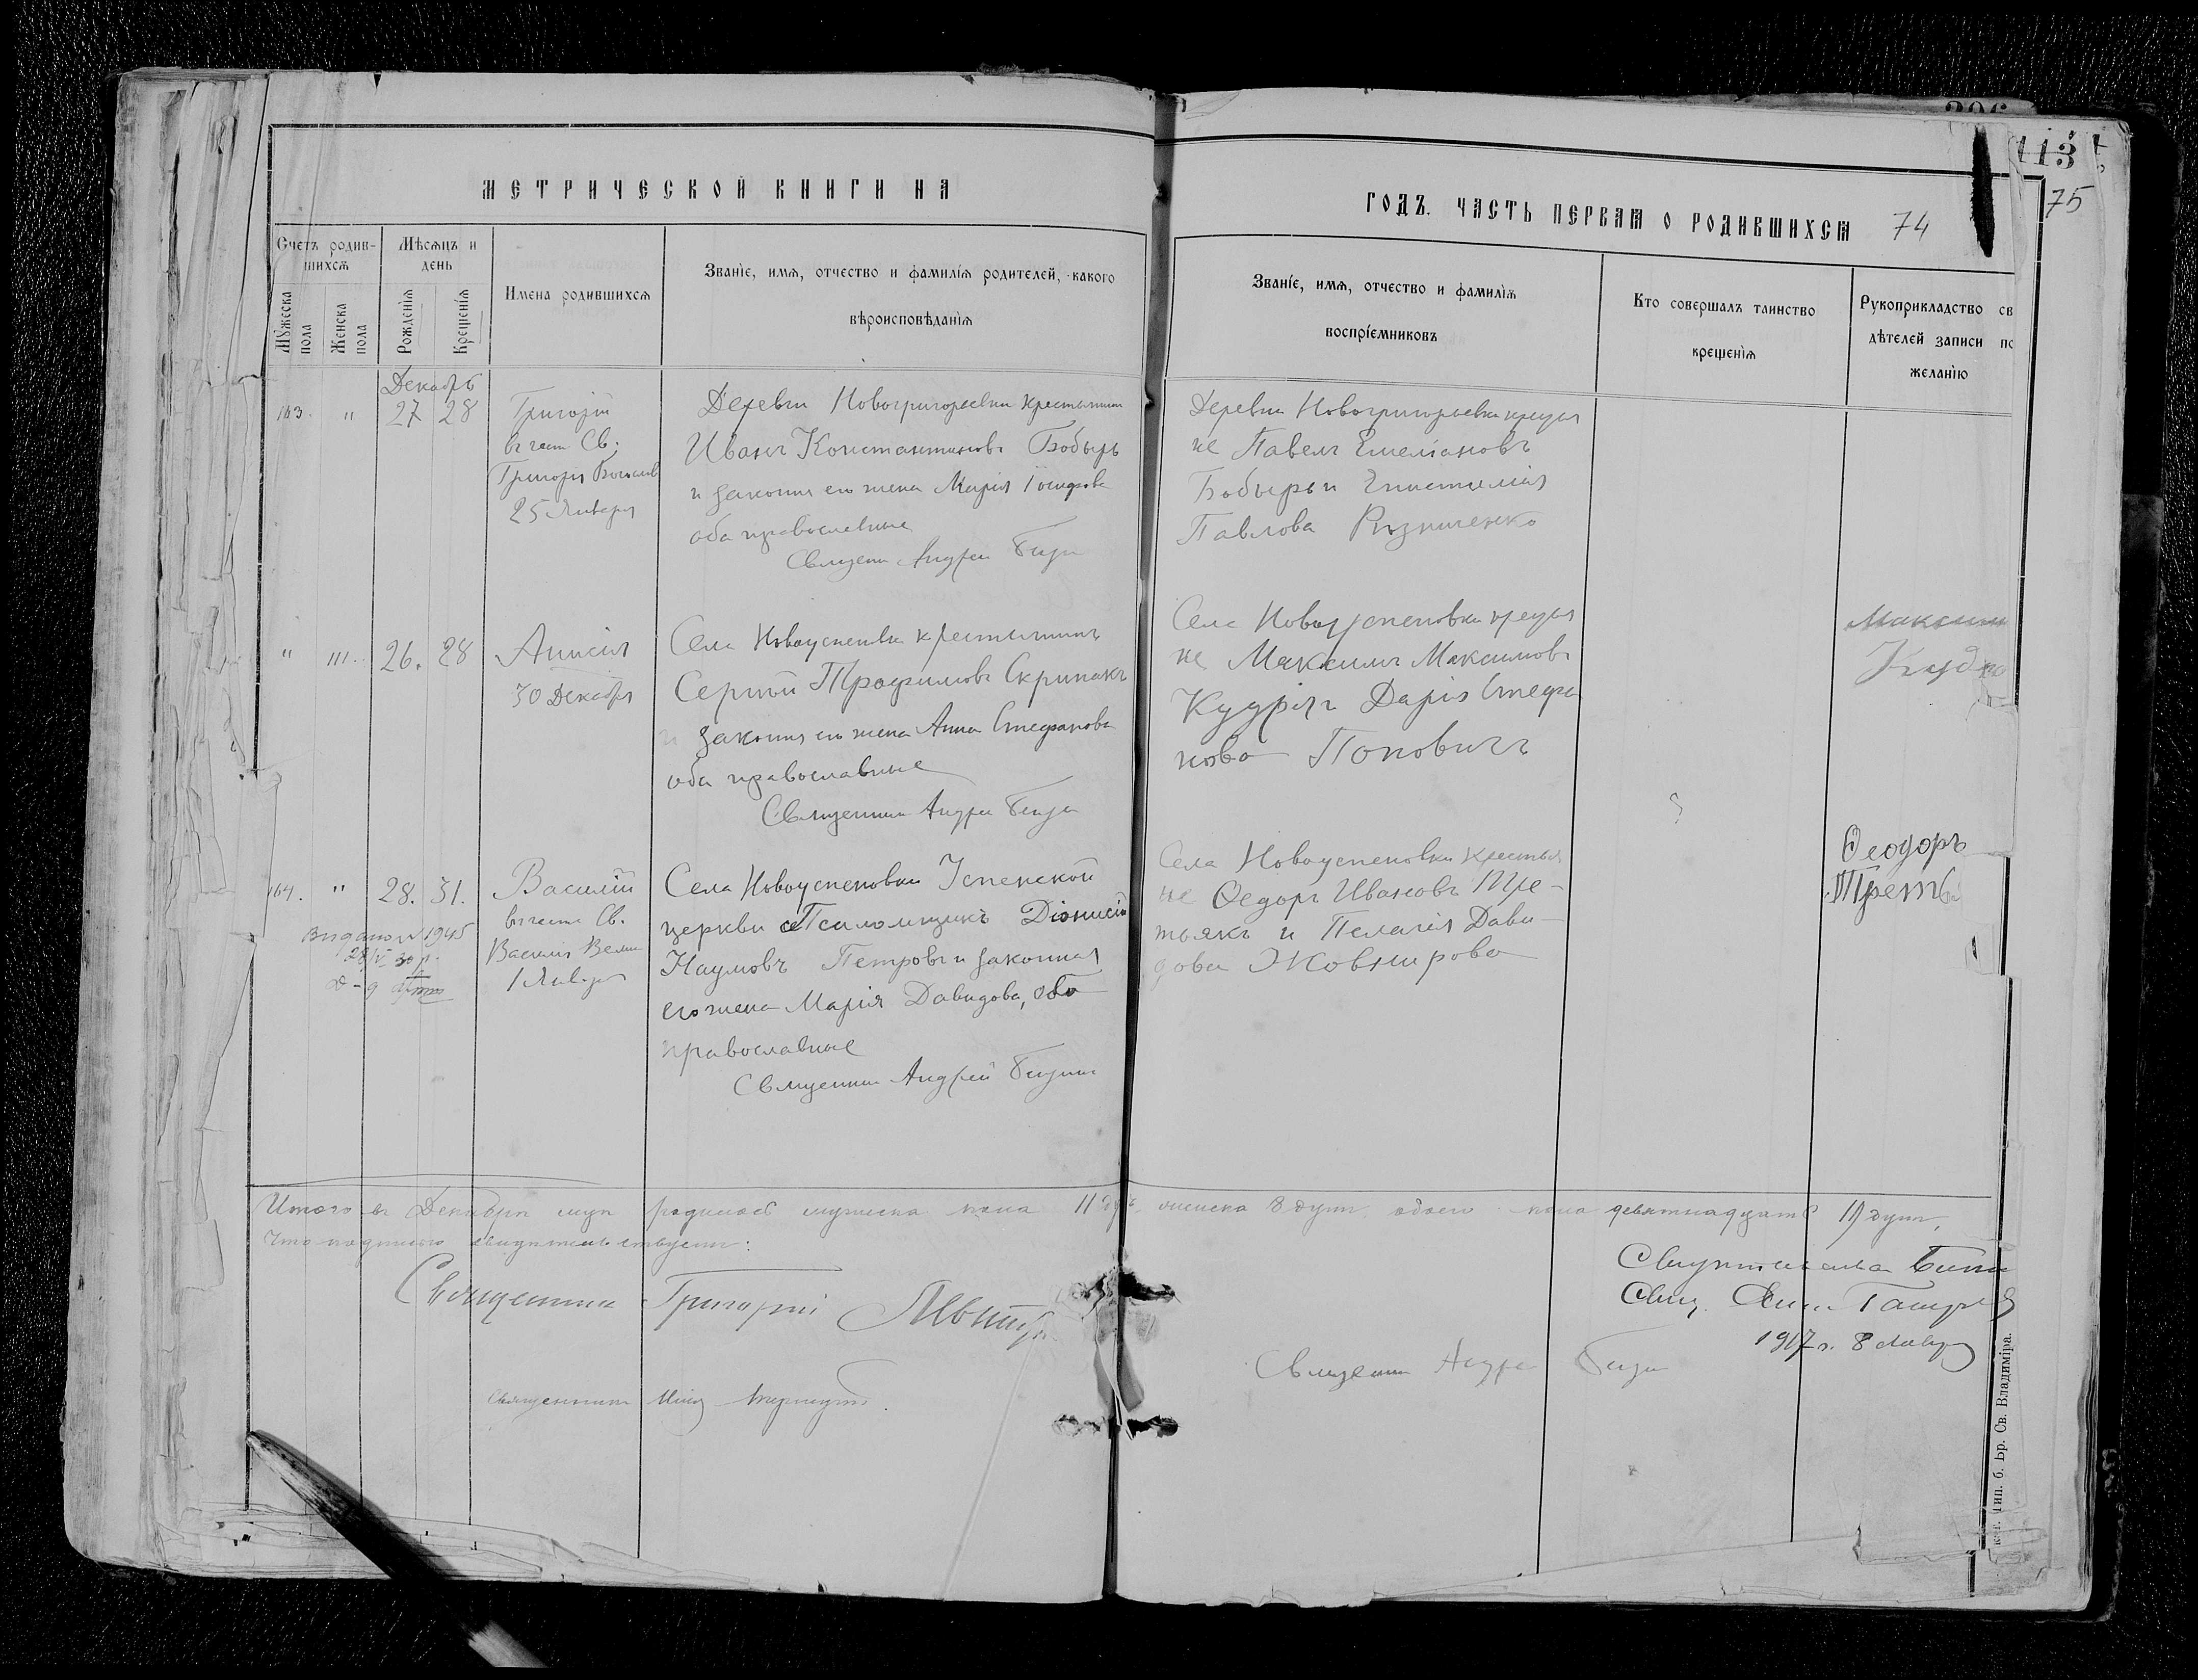 113
75
МЕТРИЧЕСКОЙ КНИГИ НА
ГОДЪ. ЧАСТЬ ПЕРВАЯ О РОДИВШИХСЯ 74
Счетъ родив-
шихся
Мужеска пола
Женска пола
Мѣсяцъ и
день
Рожденія
Крещенія
Имена родившихся
Званіе, имя, отчество и фамилія родителей, какого
вѣроисповѣданія
Званіе, имя, отчество и фамилія
воспріємниковъ
Кто совершалъ таинство
крещенія
Рукоприкладство св
дѣтелей записи по
желанію
Декабрь
163. " 27 28
Григорій
въ честь Св.
Григорія Богослов
25 Января
Деревни Новогригорьевки крестьянин
Иванъ Константиновъ Бобырь
и законная его жена Марія Іосифова
оба православные
Священ Андрей
Деревни Новогригорьевки кресья
не Павелъ Емеліановъ
Бобырь и Епистимія
Павлова Ризниченко
" 111. 26. 28
Анисія
30 Декабря
Села Новоуспеновки крестьянинъ
Сергій Трофимовъ Скрипакъ
и законная его жена Анна Стефанова
оба православные
Священник Андрей
Села Новоуспеновки кресья
не Максимъ Максимовъ
Дарія Стефа
нова Поповичъ
Максим
164. " 28. 31.
1945
Василій
въ честь Св.
Василія Вели
1 Января
Села Новоуспеновки Успенской
церкви Псаломщикъ Діонисій
Наумовъ Петровъ и законная
его жена Марія Давидова, оба
православные
Священник Андрей
Села Новоуспеновки крестья
не Ѳедоръ Ивановъ Тре-
тьякъ и Пелагія Дави-
дова Жовнирова
Ѳеодоръ
Третья
Итого въ Декабрѣ родилось мужеска пола 11 душ, женска 8 душ, обоего пола девятнадцать 19 душ,
Что подписью свидѣтельствуем:
Священник Григорій
Священник
Священник Андрей
Свящ.
1917 г. 8 Январ
Тип. б. Бр. Св. Владиміра.